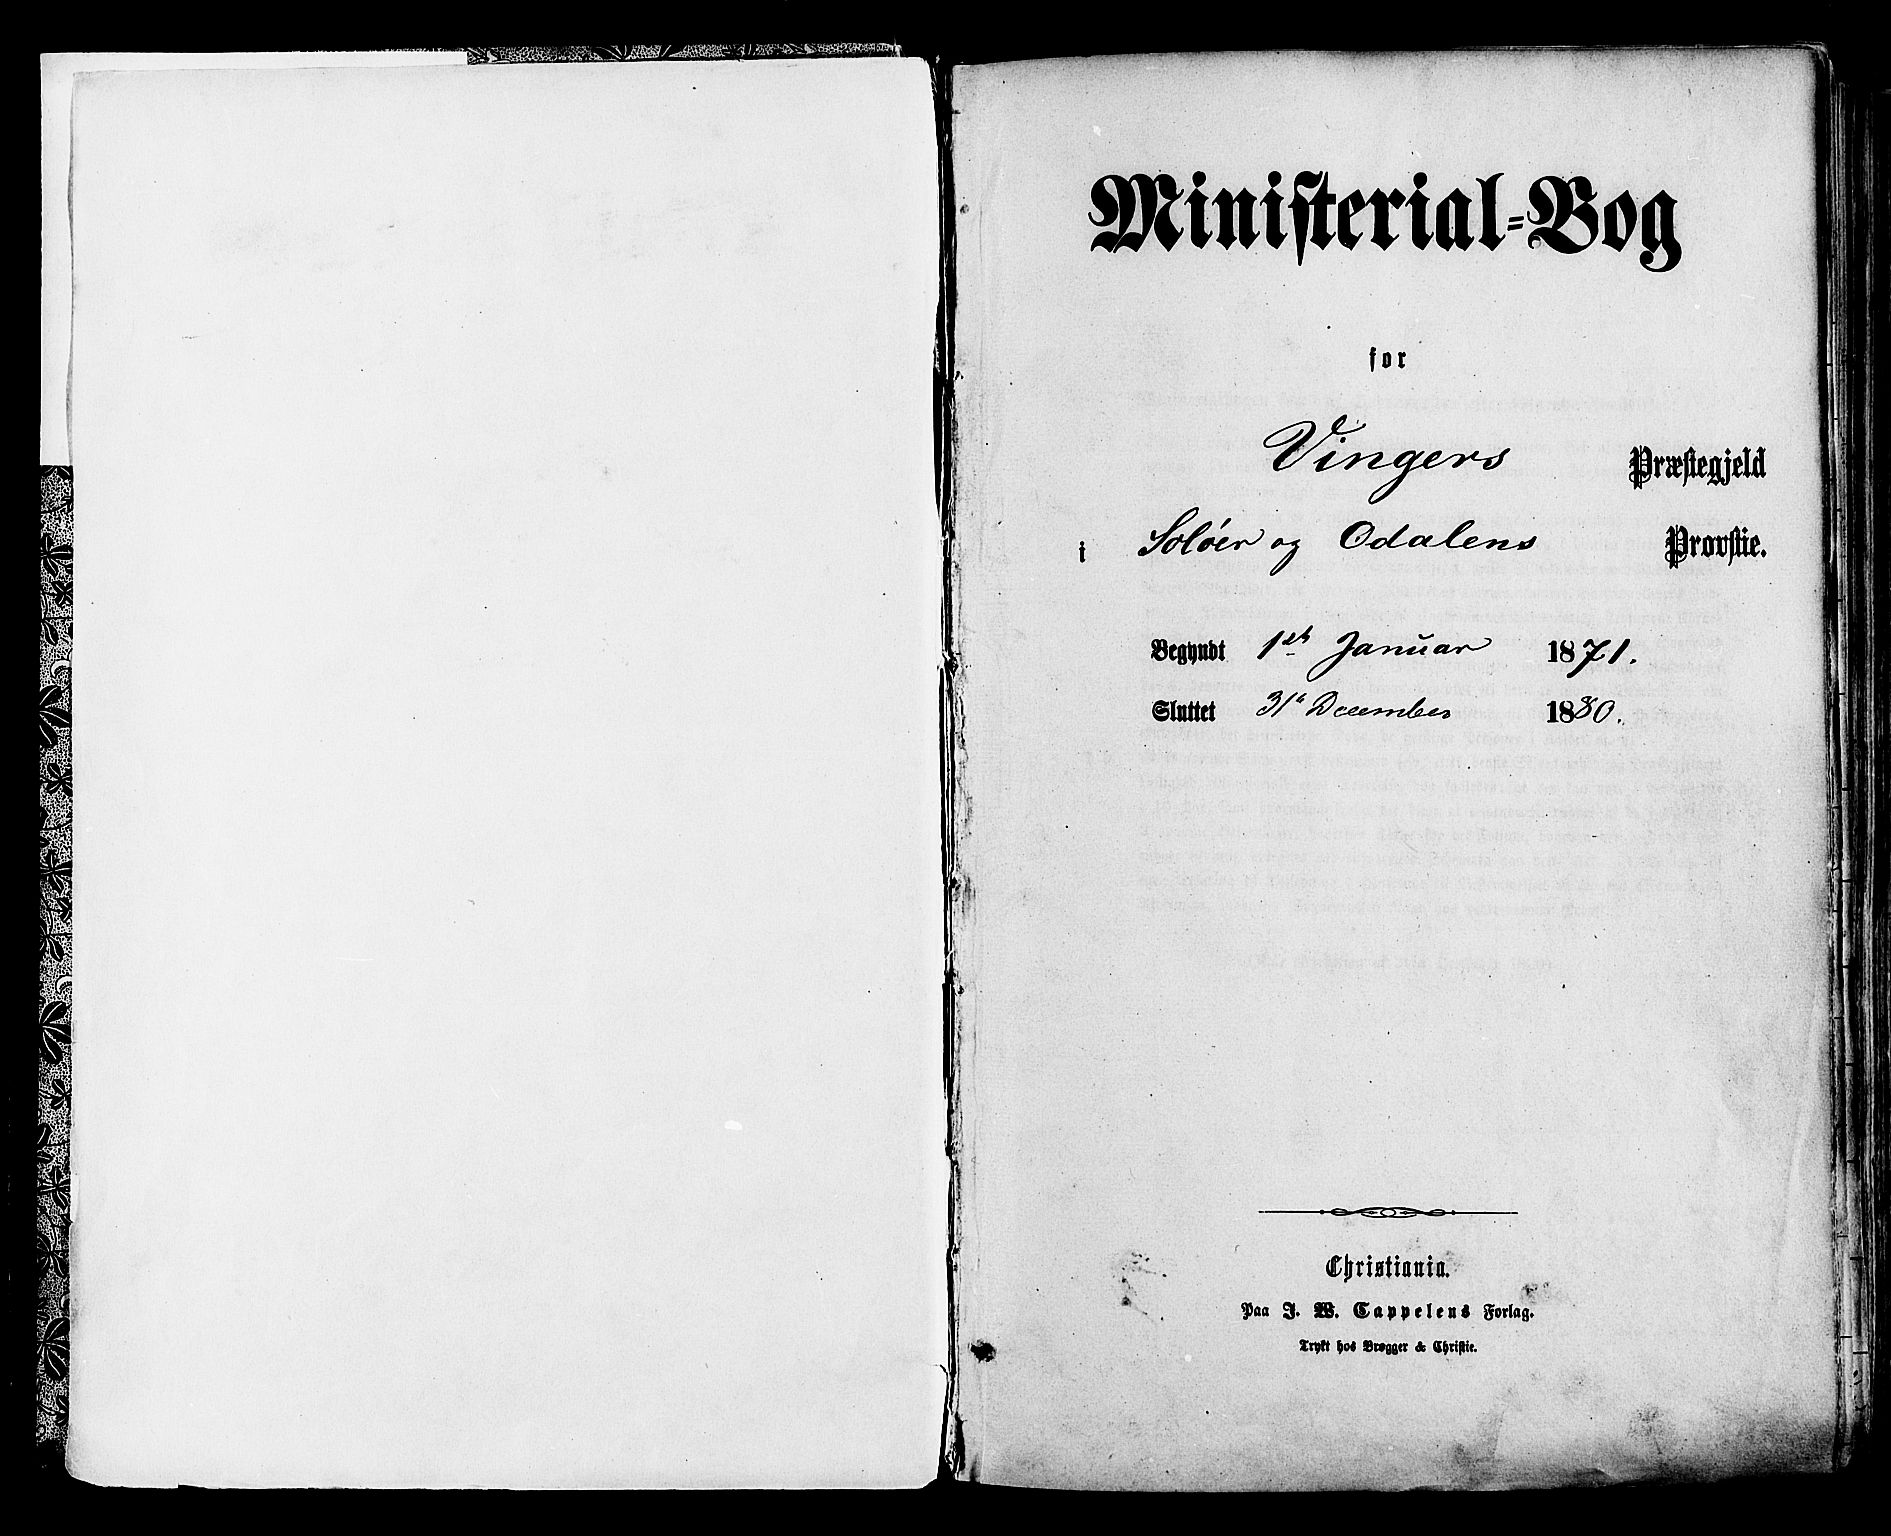 Ministerial-Bog
for
Vingers Præstegjeld
i Soløer og Odalens Provstie.
Begyndt 1st Januar 1871.
Sluttet 31te December 1880.
Christiania.
Paa J. W. Cappelens Forlag.
Trykt hos Brøgger & Christie.